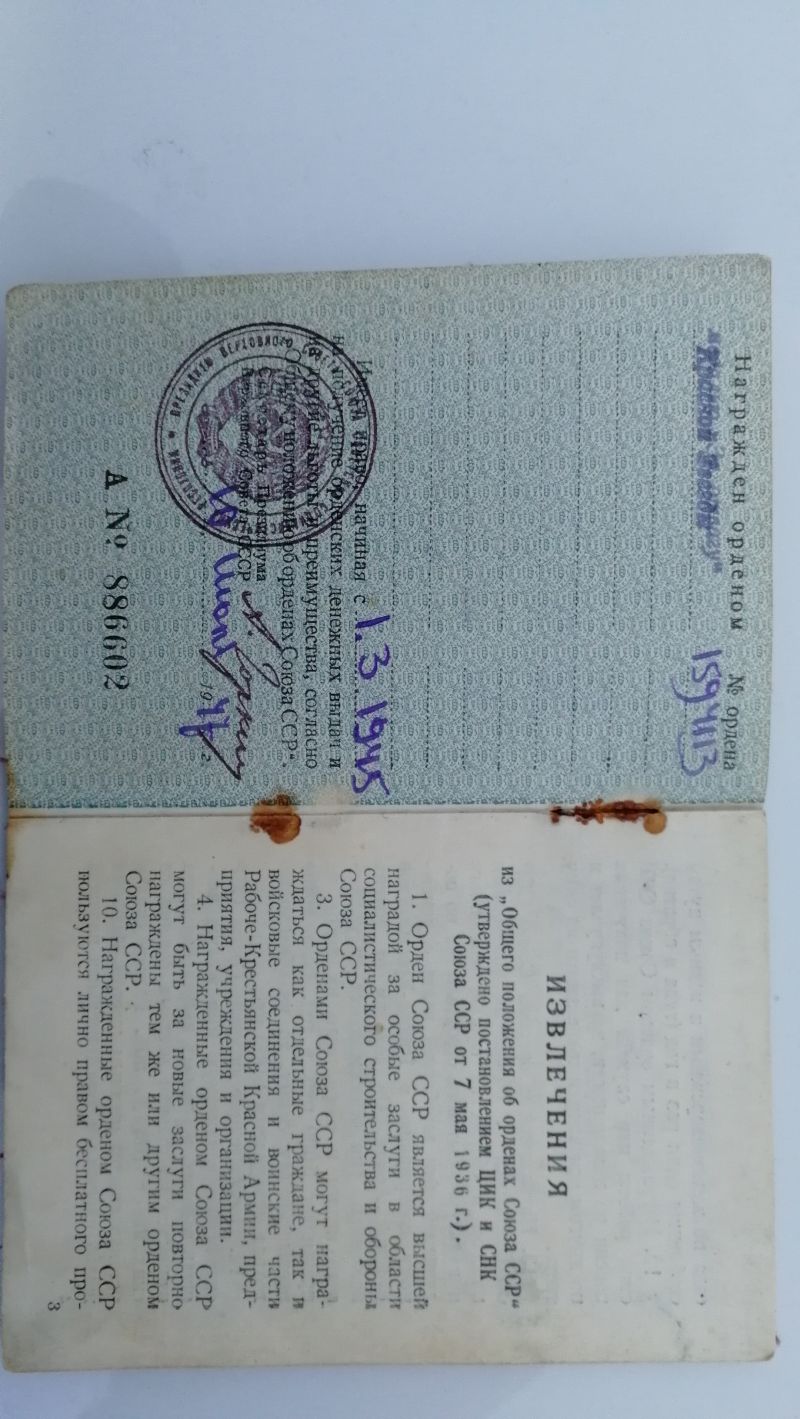 Награжден орденом № ордена
„Красная Звезда"
Имеет право, начиная с 1.3 1945
на получение орденских денежных выдач и
другие льготы и преимущества, согласно
„Общему положению об орденах Союза ССР".
Секретарь Президиума
Верховного Совета СССР
А. Горкин
19 47 г.
А № 886602
ИЗВЛЕЧЕНИЯ
из „Общего положения об орденах Союза ССР"
(утверждено постановлением ЦИК и СНК
Союза ССР от 7 мая 1936 г.).
1. Орден Союза ССР является высшей
наградой за особые заслуги в области
социалистического строительства и обороны
Союза ССР.
3. Орденами Союза ССР могут награ-
ждаться как отдельные граждане, так и
войсковые соединения и воинские части
Рабоче-Крестьянской Красной Армии, пред-
приятия, учреждения и организации.
4. Награжденные орденом Союза ССР
могут быть за новые заслуги повторно
награждены тем же или другим орденом
Союза ССР.
10. Награжденные орденом Союза ССР
пользуются лично правом бесплатного про-
3